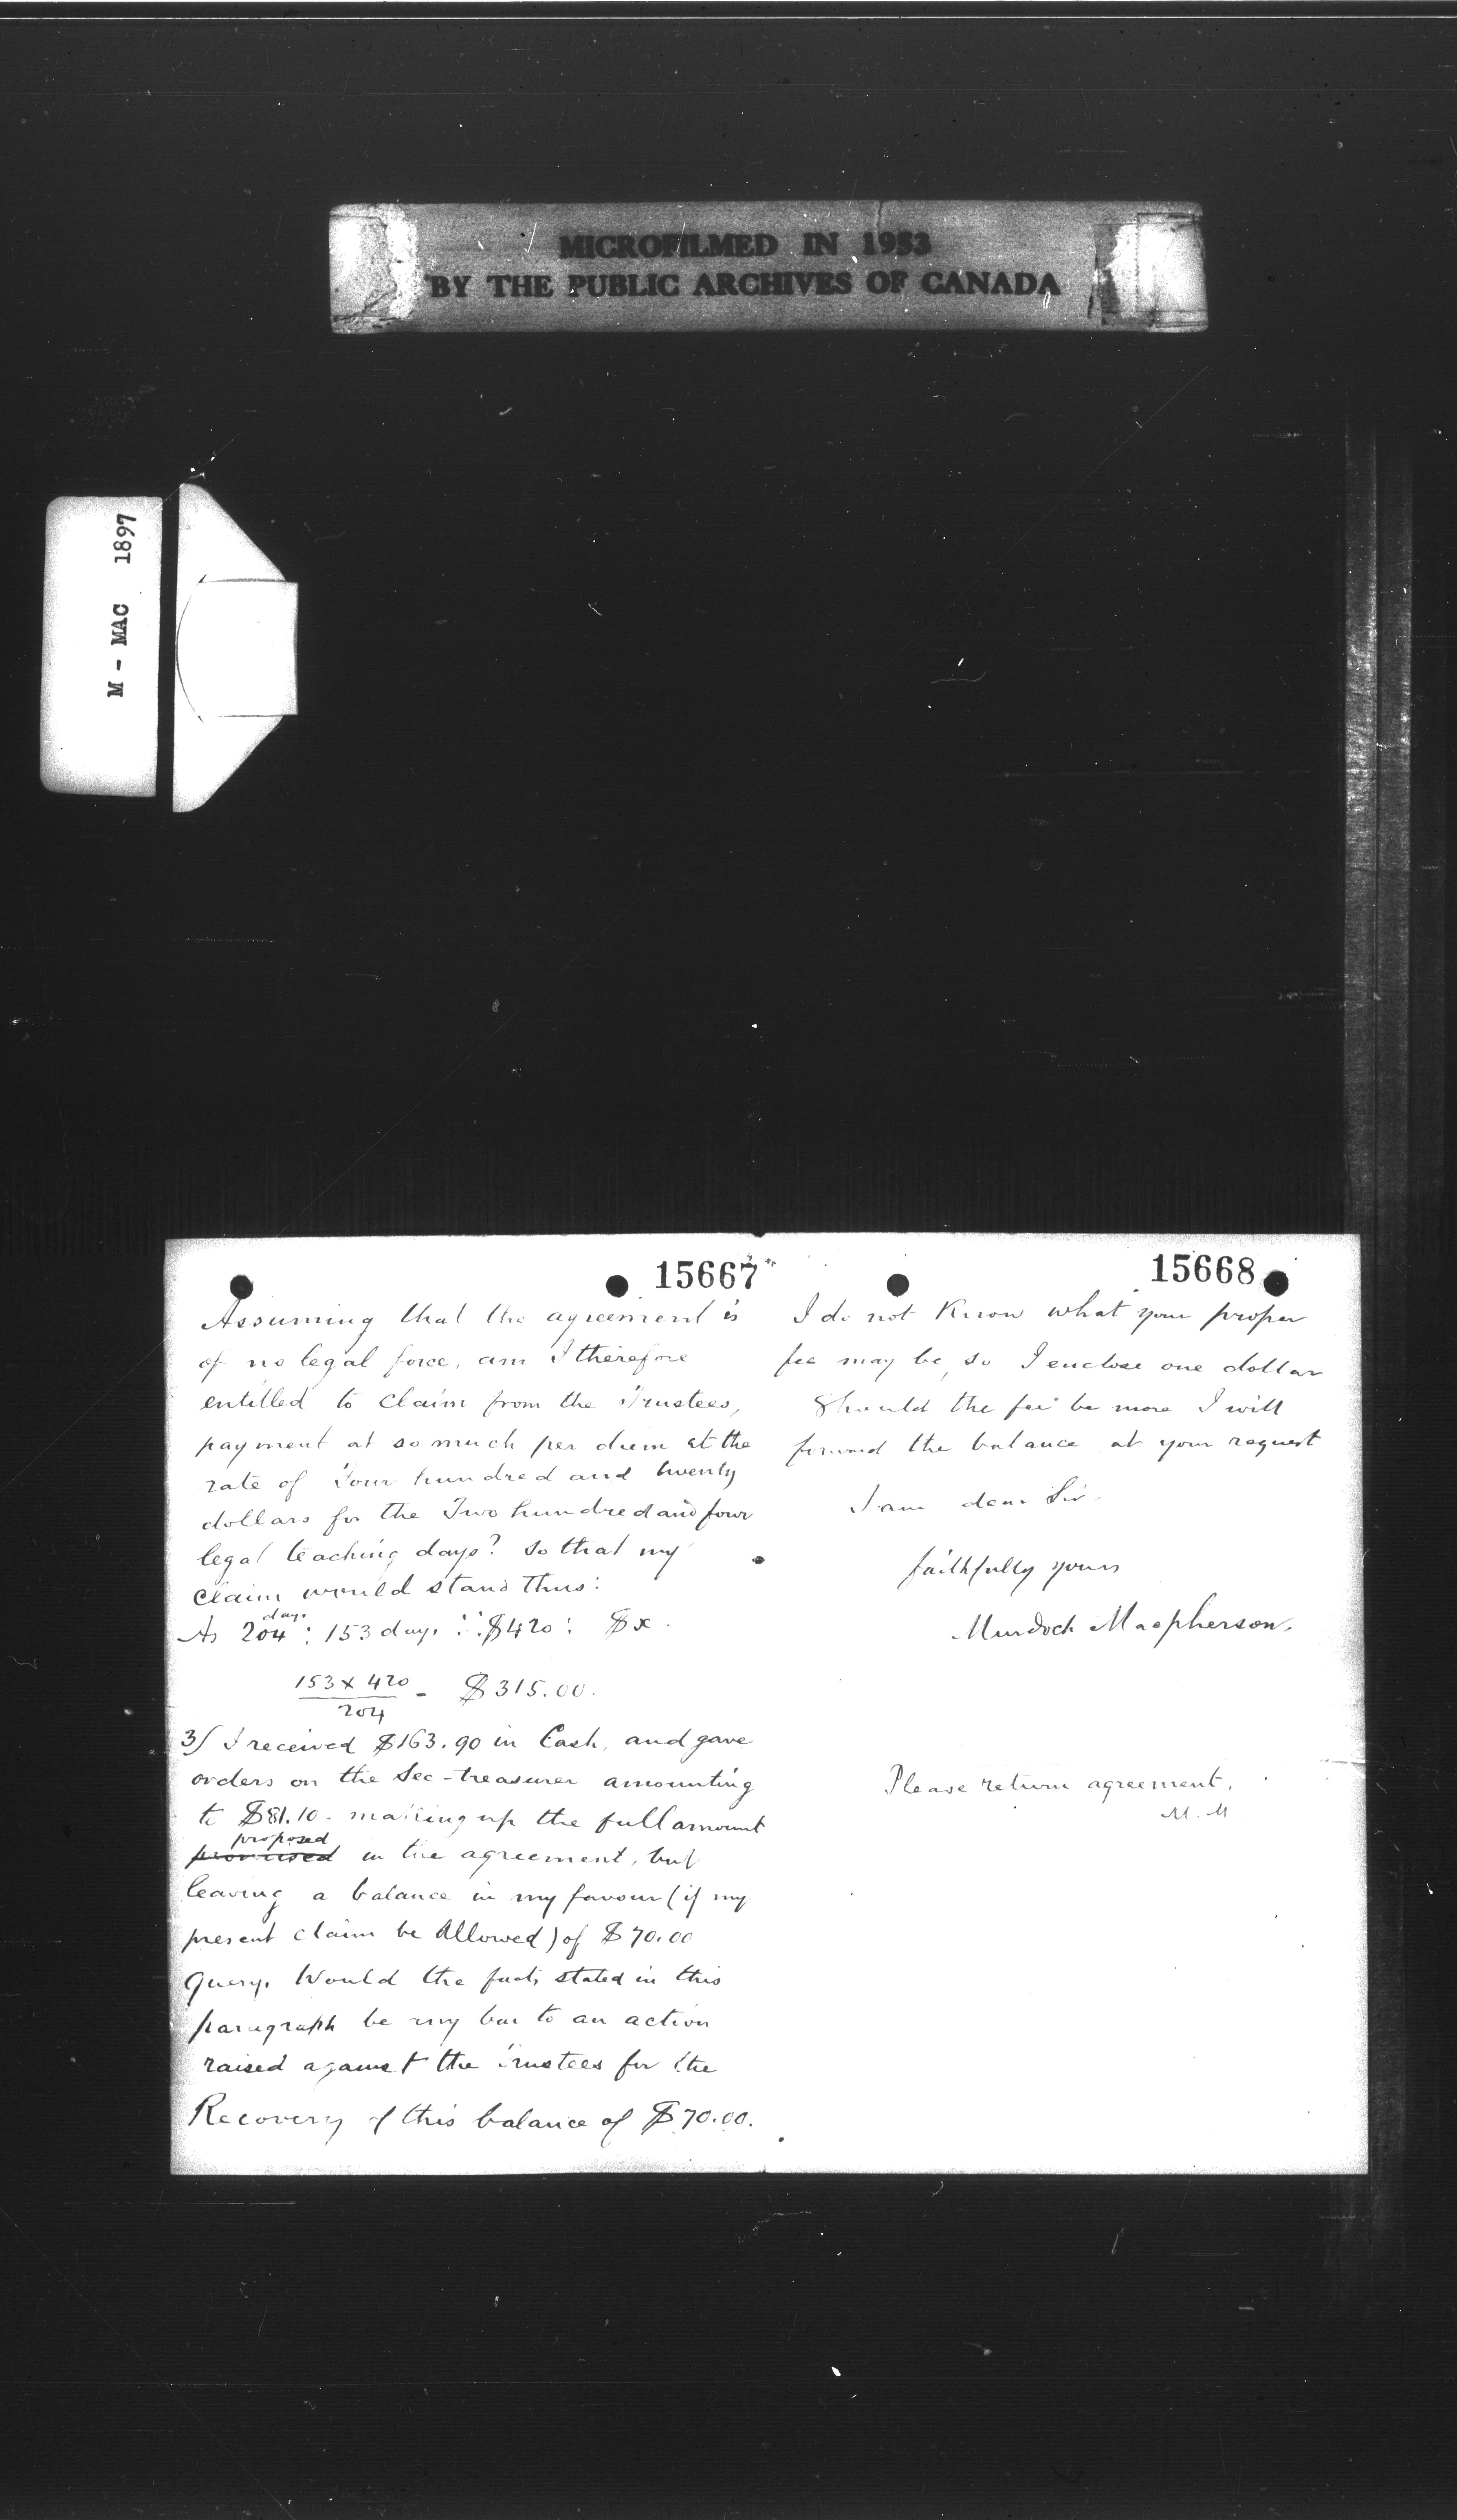 MICROFILMED IN 1953
BY THE PUBLIC ARCHIVES OF CANADA
M - MAC 1897
15667
Assuming that the agreement is
of no legal force, am I therefore
entitled to claim from the Trustees,
payment at so much per diem at the
rate of Four hundred and twenty
dollars for the Two hundred and four
legal teaching days? So that my
claim would stand thus:
days
As 204 : 153 days :: $420 : $x.
153 x 420
204
- $315.00.
3/ I received $163.90 in Cash, and gave
orders on the Sec-treasurer amounting
to $81.10 - making up the full amount
proposed
promised in the agreement, but
leaving a balance in my favour (if my
present claim be Allowed) of $70.00
Query. Would the facts stated in this
paragraph be any bar to an action
raised against the Trustees for the
Recovery of this balance of $70.00.
15668
I do not Know what your proper
fee may be, so I enclose one dollar
Should the fee be more I will
forward the balance at your request
I am dear Sir
faithfully yours
Murdoch Macpherson.
Please return agreement.
M. M